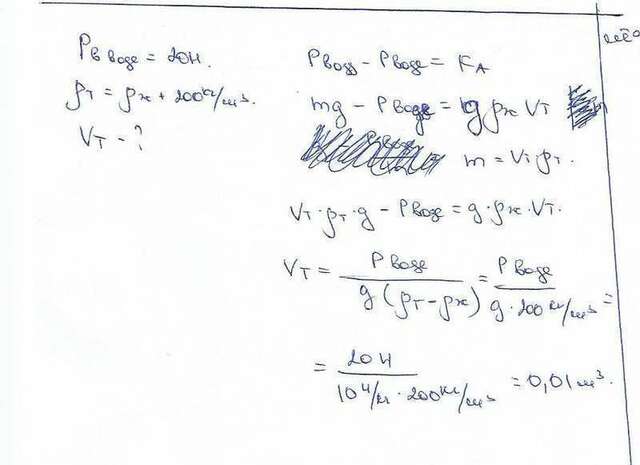 P в воде = 20Н.
ρт = ρж + 200 кг/м³.
Vт - ?
P возд - P воде = FA
mg - P воде = g ρж Vт
m = Vт ρт.
Vт · ρт · g - P воде = g · ρж · Vт.
Vт = P воде / g (ρт - ρж) = P воде / g · 200 кг/м³ =
= 20Н / 10 Н/кг · 200 кг/м³ = 0,01 м³.